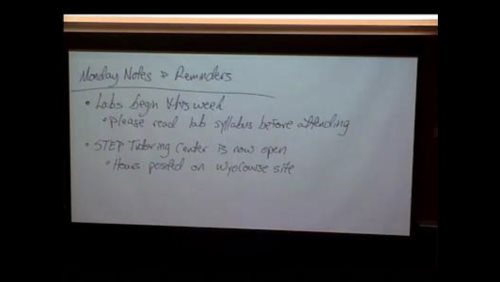 Monday Notes & Reminders
• Labs begin this week
• Please read lab syllabus before attending
• STEP Tutoring Center is now open
• Hours posted on WyoCourse site